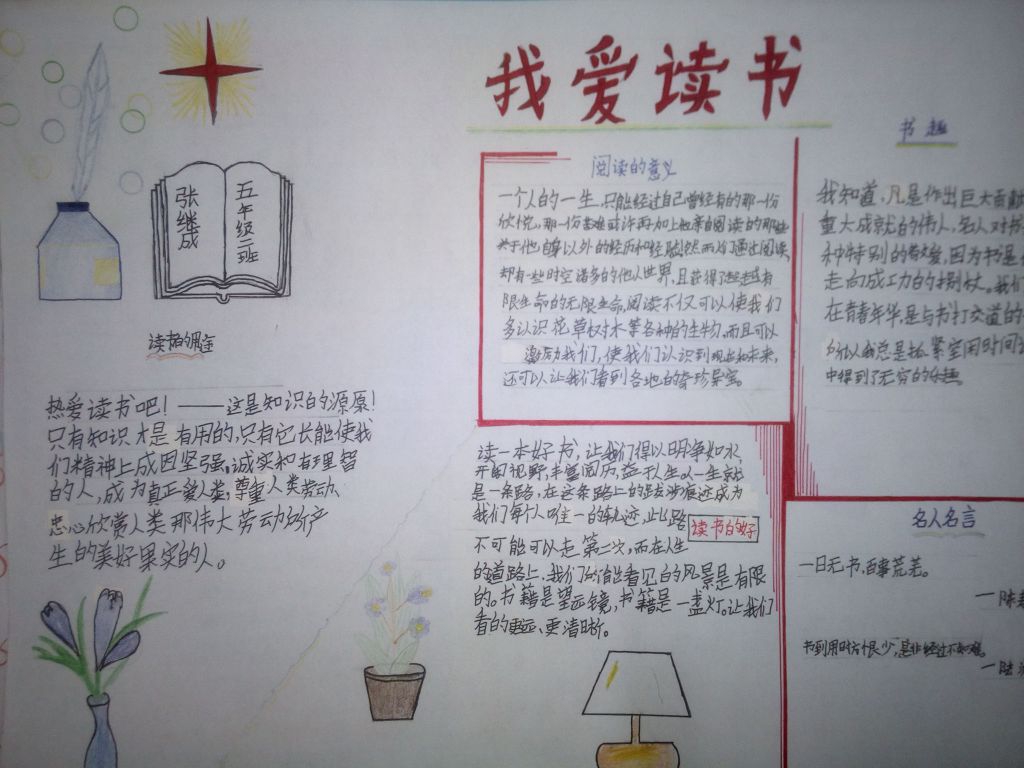 我爱读书
张继成
五年级二班
读书的用途
热爱读书吧！——这是知识的源原！
只有知识才是有用的，只有它长能使我
们精神上成因坚强、诚实和有理智
的人，成为真正爱人类，尊重人类劳动、
忠心欣赏人类那伟大劳动所产
生的美好果实的人。
阅读的意义
一个人的一生，只能经过自己曾经有的那一份
欣悦，那一份苦难或许再加上他亲自阅读的那些
关于他自身以外的经历和经验。然而人们通过阅读
却有一些时空诸多的他人世界，且获得了超越有
限生命的无限生命，阅读不仅可以使我们
多认识花草树木等各种的生物，而且可以
激励我们，使我们认识到现在和未来，
还可以让我们看到各地的奇珍异宝。
读一本好书，让我们得以明争如水，
开阔视野，丰富阅历，益于人生。人一生就
是一条路，在这条路上的跋涉痕迹成为
我们每个人唯一的轨迹，此路
读书的好
不可能可以走第二次，而在人生
的道路上，我们所能看见的风景是有限
的。书籍是望远镜，书籍是一盏灯。让我们
看的更远、更清晰。
书趣
我知道，凡是作出巨大贡献
重大成就的伟人、名人对书
种特别的酷爱，因为书是
走向成工力的拐杖。我们
在青青年华，是与书打交道的
所以我总是抓紧空闲时间
中得到了无穷的乐趣
名人名言
一日无书，百事荒芜。
书到用时方恨少，是非经过不知难。
—陆